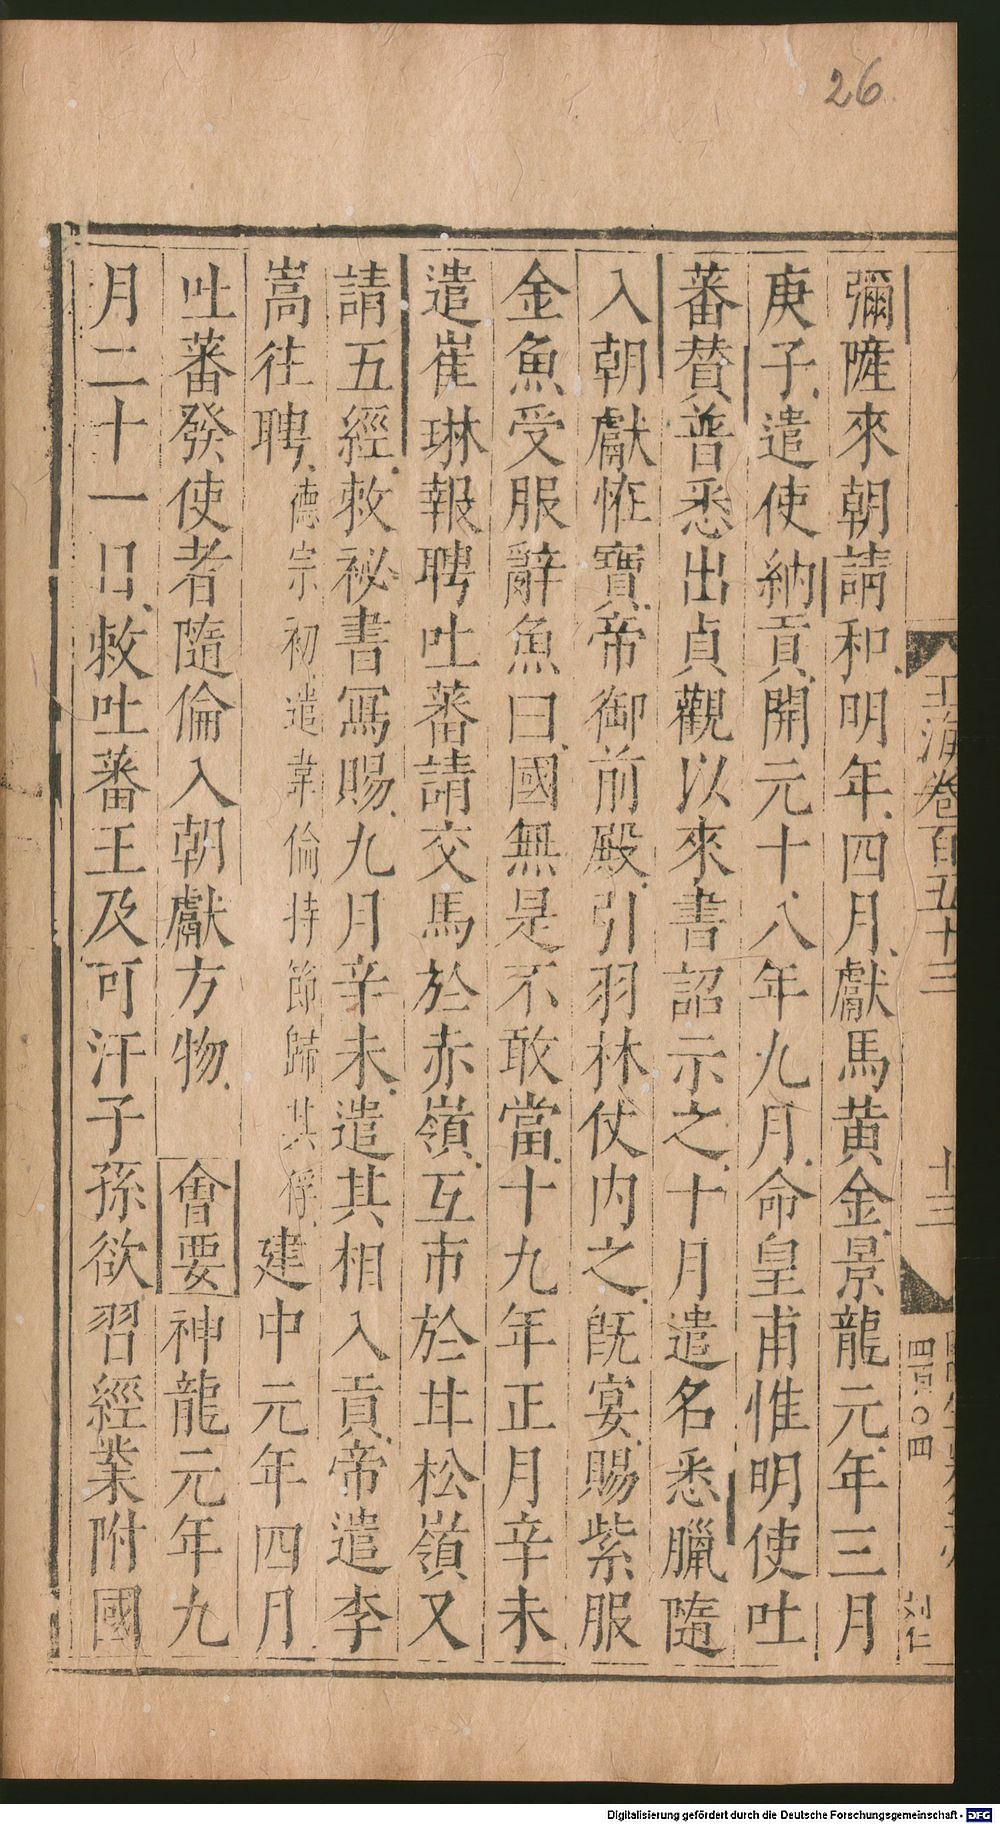 26
玉海卷百五十三
十三
四百〇四
刘仁
彌隡來朝請和明年四月獻馬黄金景龍元年三月
庚子遣使納貢開元十八年九月命皇甫惟明使吐
蕃賛普悉出貞觀以來書詔示之十月遣名悉臘隨
入朝獻恠寶帝御前殿引羽林仗内之旣宴賜紫服
金魚受服辭魚曰國無是不敢當十九年正月辛未
遣崔琳報聘吐蕃請交馬於赤嶺互市於甘松嶺又
請五經敕祕書寫賜九月辛未遣其相入貢帝遣李
嵩往聘德宗初遣韋倫持節歸其俘建中元年四月
吐蕃發使者隨倫入朝獻方物會要神龍元年九
月二十一日敕吐蕃王及可汗子孫欲習經業附國
Digitalisierung gefördert durch die Deutsche Forschungsgemeinschaft - DFG